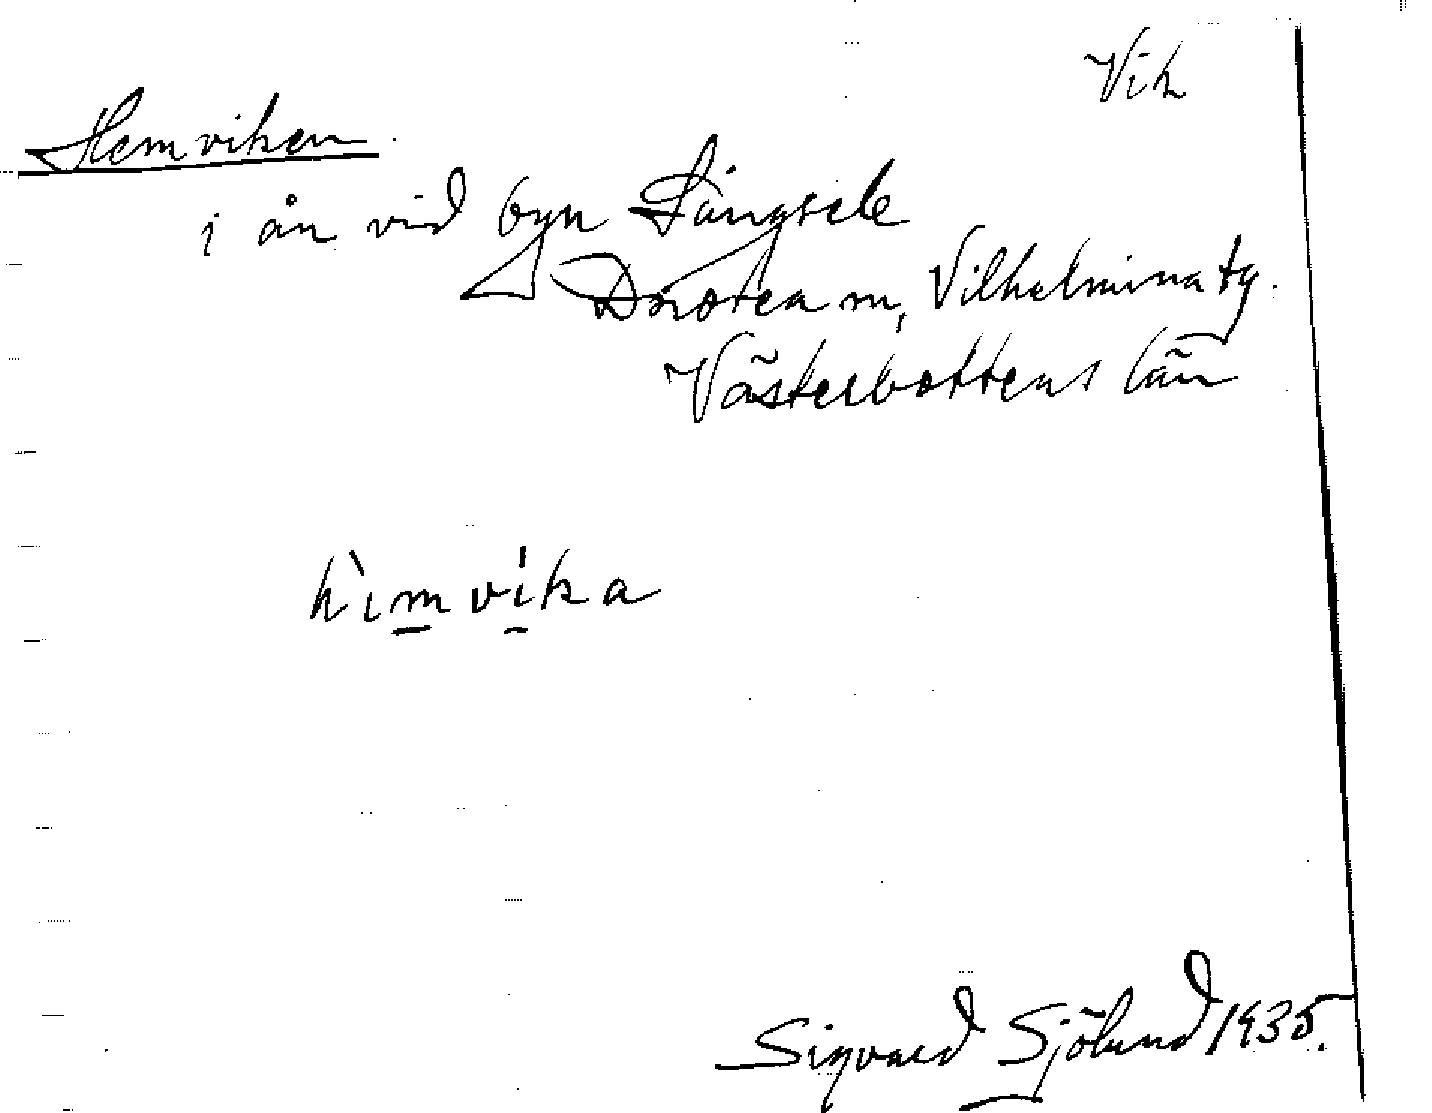 Vik
Hemviken
i ån vid byn Långsele
Dorotea m, Vilhelmina tg.
Västerbottens län
hìmvika
Sigvard Sjölund 1935.